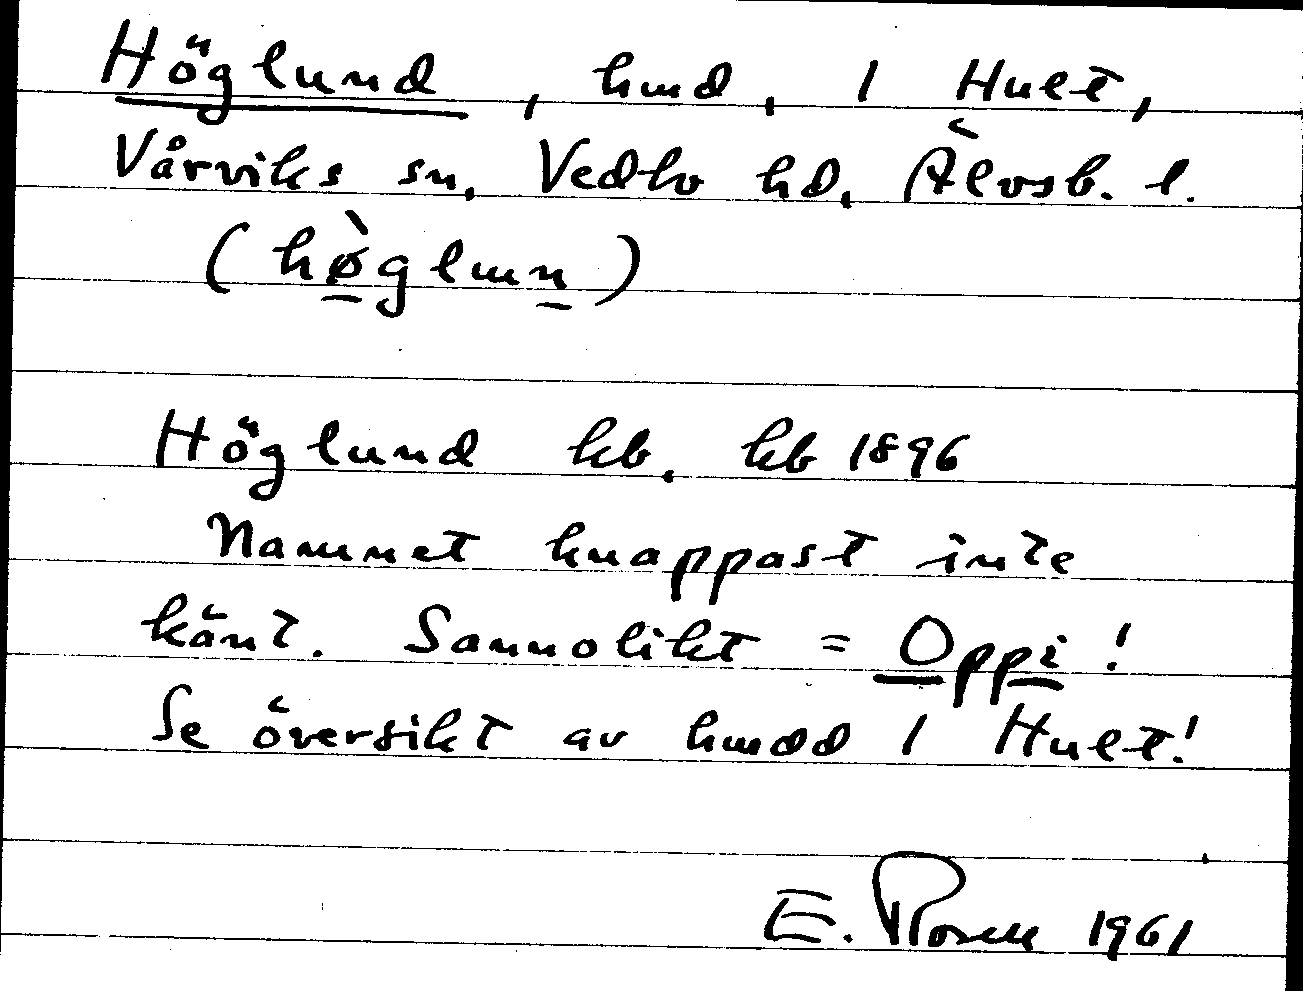 Höglund, hmd, 1 Hult,
Vårviks sn, Vedbo hd, Älvsb. l.
(hø̀glunn)
Höglund hb, kb 1896
Namnet knappast inte
känt. Sannolikt = Oppi!
Se översikt av hmdd 1 Hult!
E. Rosell 1961